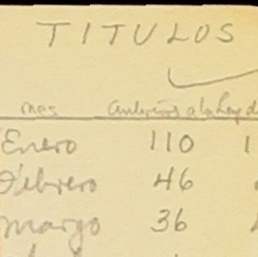 TITULOS
mes anteriores a la Ley d
Enero 110 1
Febrero 46
Marzo 36